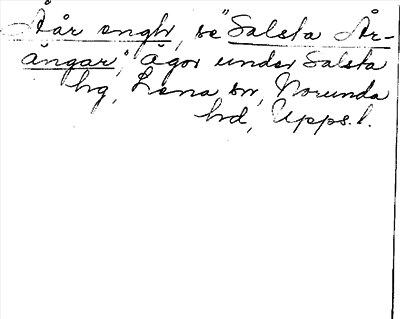 Åår engh, se "Salsta År-
ängar," ägor under Salsta
hg, Lena sn, Norunda
hd, Upps. l.